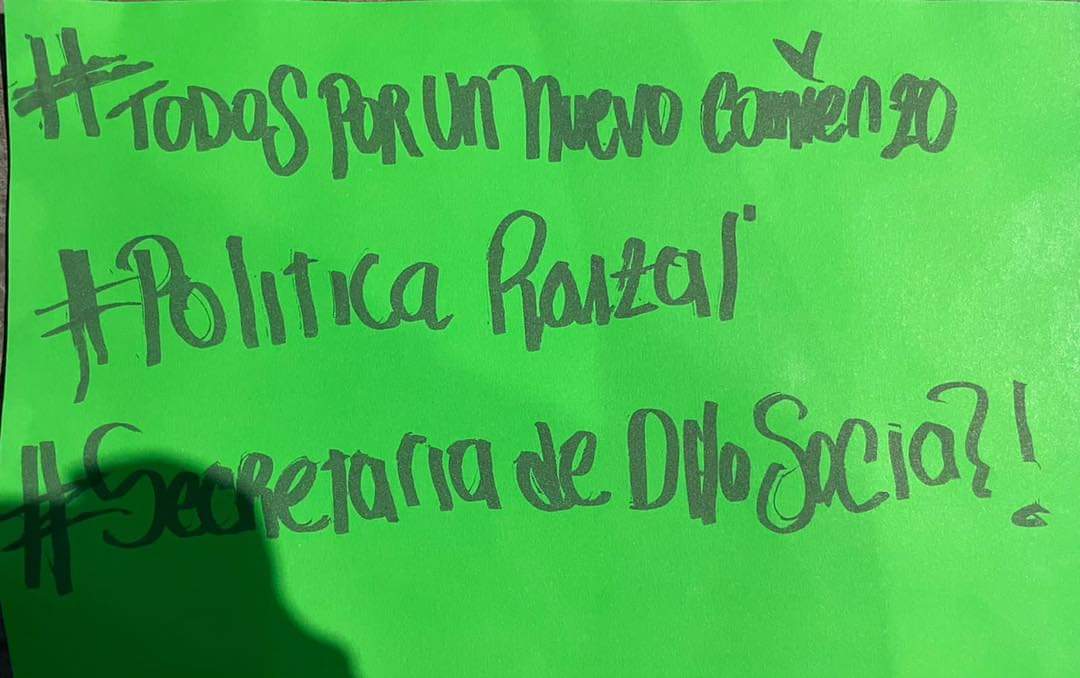 #TODOS POR UN NUEVO Comienzo
#Politica Raizal
#Secretaria de Dllo Social!